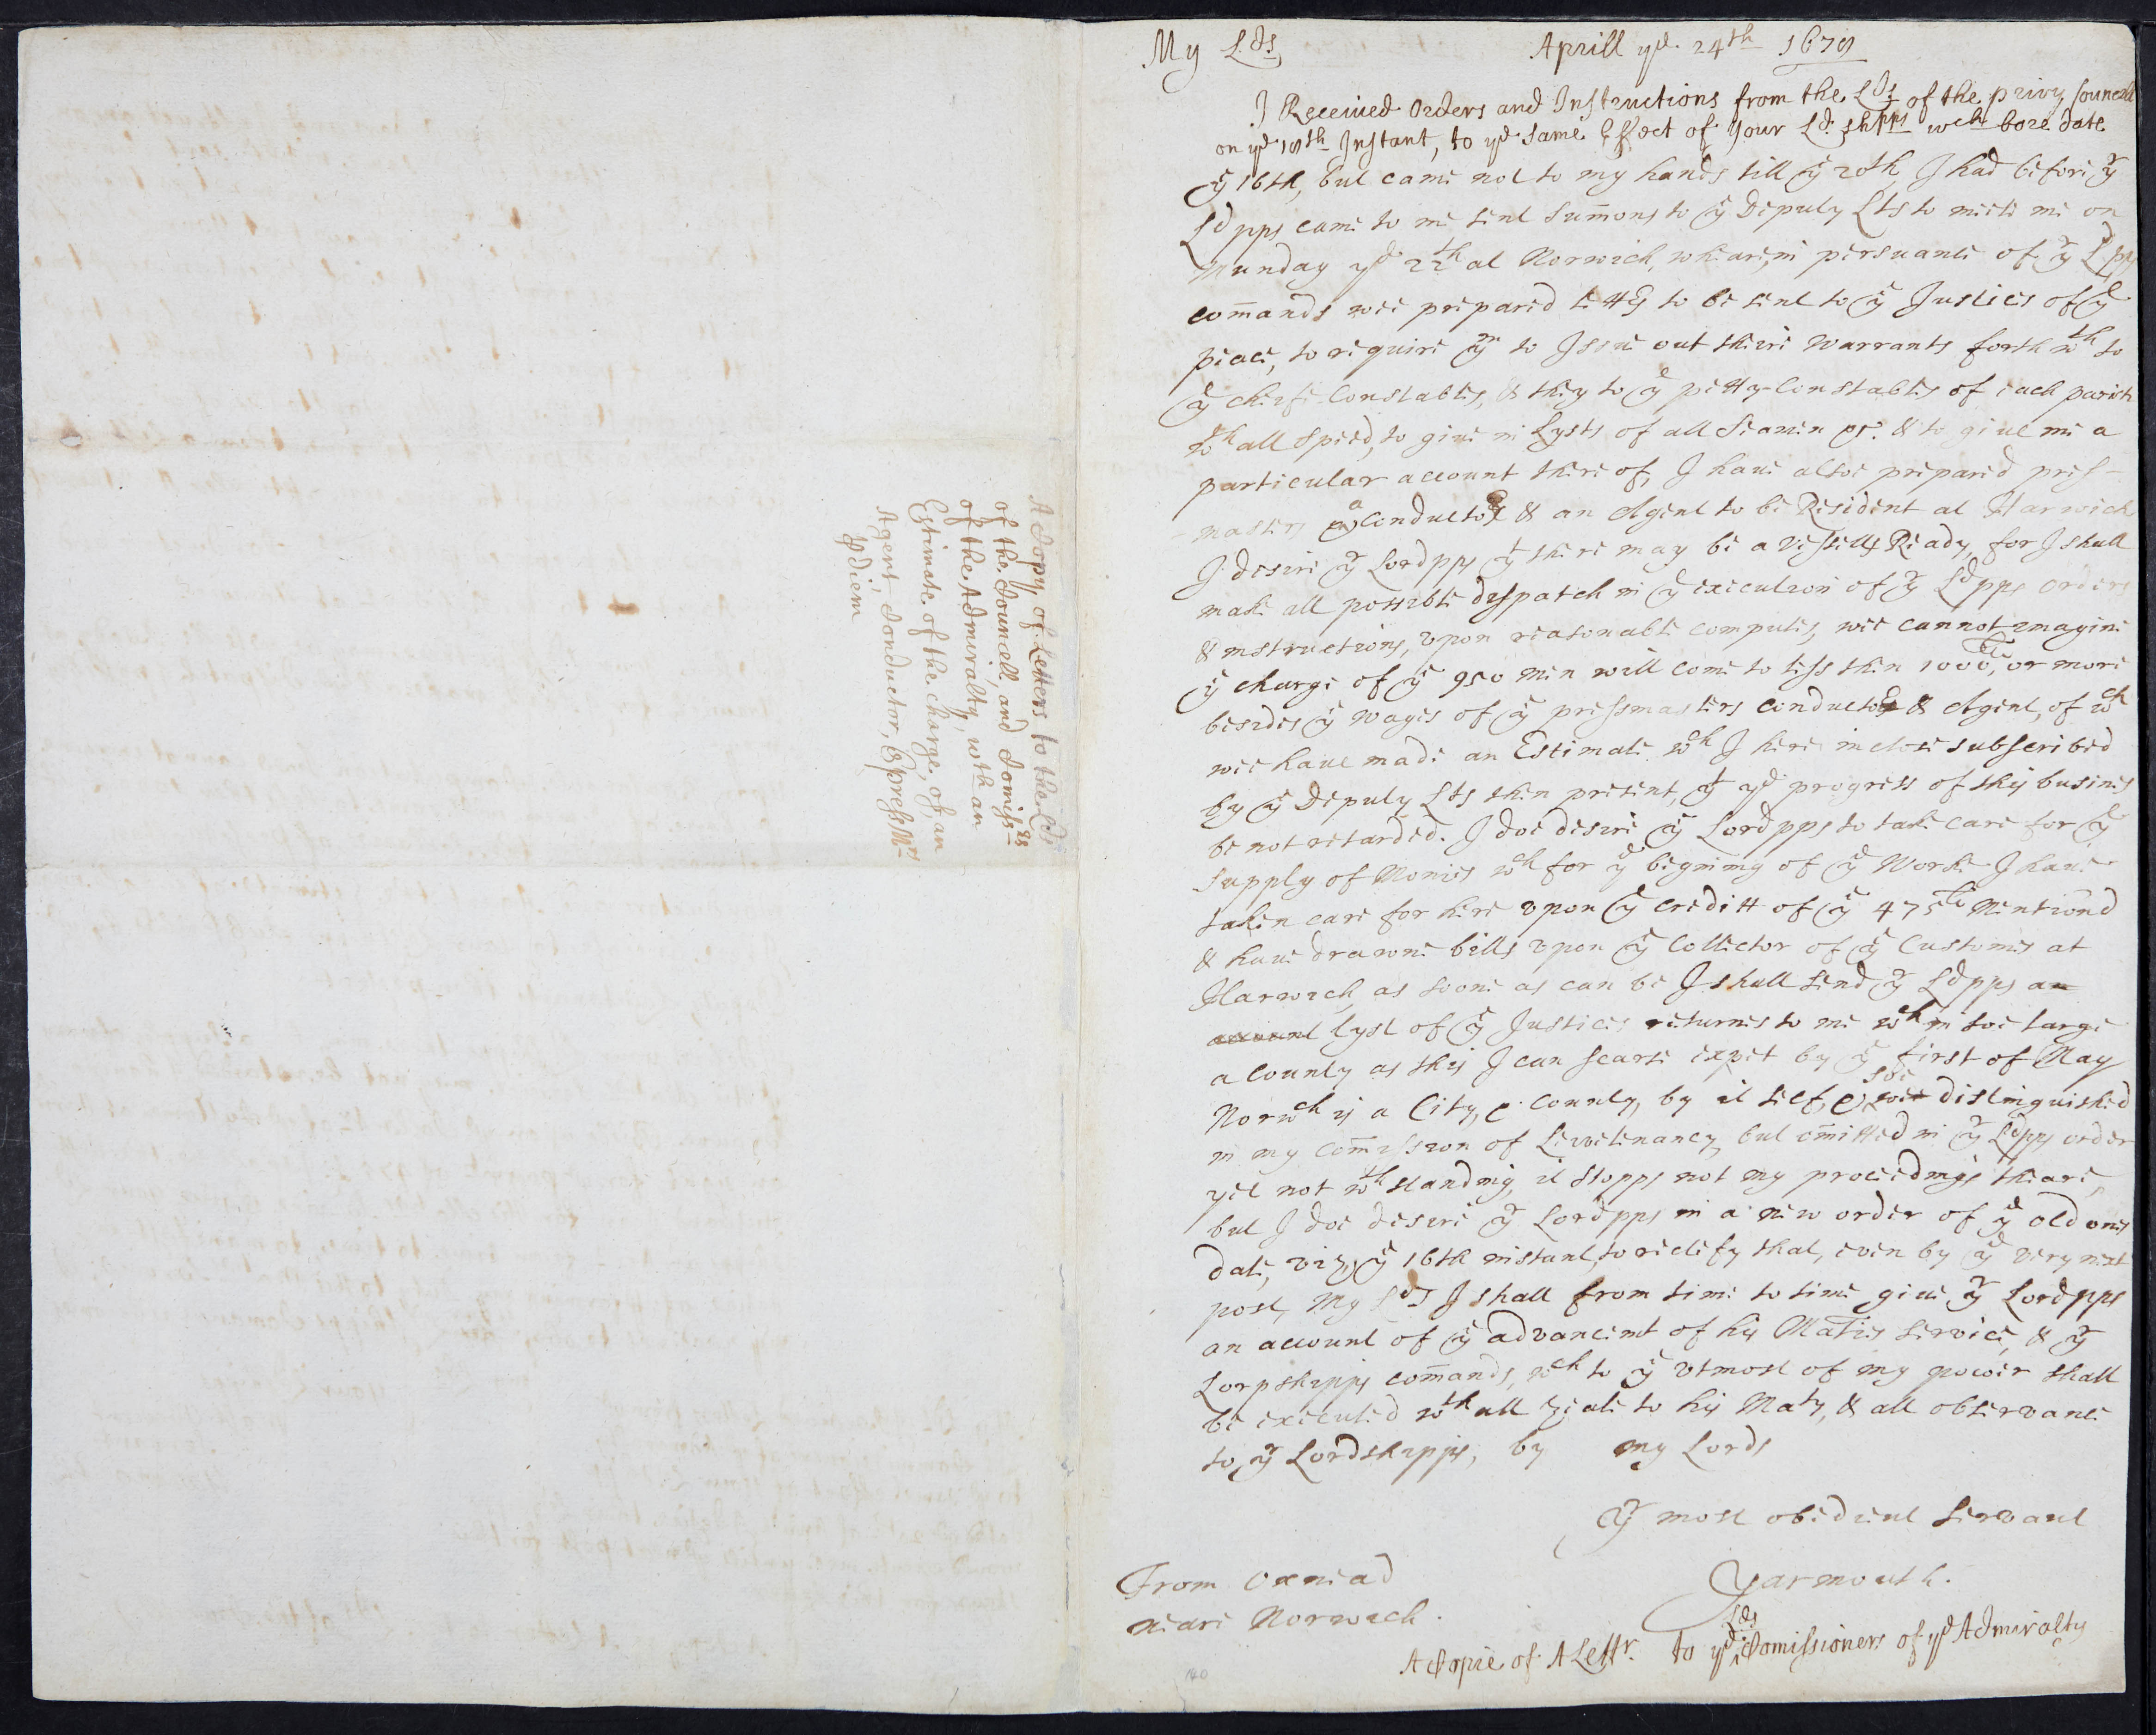 A Copy of Letters to the Lds
of the Councell, and Comiss:rs
of the Admiralty, wth an
Estimate of the Charge, of, an
Agent Conductor, & press Mrs
p diem
My Lds Aprill ye 24th 1678
I Received Orders and Instructions from the Lds of the privy Councell
on ye 18th Instant, to ye same Effect of your Ld:shpps wch bore date
ye 16th, but came not to my hands till ye 20th, I had before yr
Ldpps came to me sent Sum̄ons to ye Deputy Lts to meete me on
Munday ye 22th at Norwich, wheare, in persuance of yr Ldpps
com̄ands wee prepared letters to be sent to ye Justices of ye
peace, to require ym to Issue out theire Warrants forthwth to
ye cheife Constables, & they to ye petty Constables of each parish
wth all speed, to give in Lysts of all Seamen &c: & to give me a
particular account there of, I have alsoe prepared press-
masters a Conductor & an Agent to be Resident at Harwich
I desire yr Lordpps yt there may be a vessell Ready, for I shall
make all possible dispatch in ye execution of yr Ldpps orders
& instructions, upon reasonable computes, wee cannot imagine
ye charge of ye 950 men will come to less then 1000li, or more
besides ye wages of ye pressmasters conductor & Agent, of wch
wee have made an Estimate wch I here inclose subscribed
by ye Deputy Lts then present, yt ye progress of this busines
be not retarded. I doe desire yr Lordpps to take care for ye
supply of Monies wch for ye begining of ye Worke I have
taken care for here upon ye creditt of ye 475li Mentiond
& have drawne bills upon ye Collector of ye Customes at
Harwich, as soone as can be I shall send yr Ldpps an
account lyst of ye Justices returnes to me wch in soe large
a County as this I can scarse expect by ye first of May
Norwch is a City, & County, by it self, & soe distinguished
in my com̄ission of Leivetenancy, but om̄itted in yr Ldpps order
yet not wthstanding, it stopps not my proceedings theare,
but I doe desire yr Lordpps in a new order of ye old ones
date, viz, ye 16th instant, to rectify that, even by ye very next
post, My Lds I shall from time to time give yr Lordpps
an account of ye advancemt of his Maties service, & yr
Lorpshipps com̄ands, wch to ye utmost of my power shall
be executed wth all zeale to his Maty, & all observance
to yr Lordshipps, by my Lords
yr most obedient servant
Yarmouth.
From Oxnead
neare Norwich.
A Copie of A Lettr. to ye Lds Comissioners of ye Admiralty
140